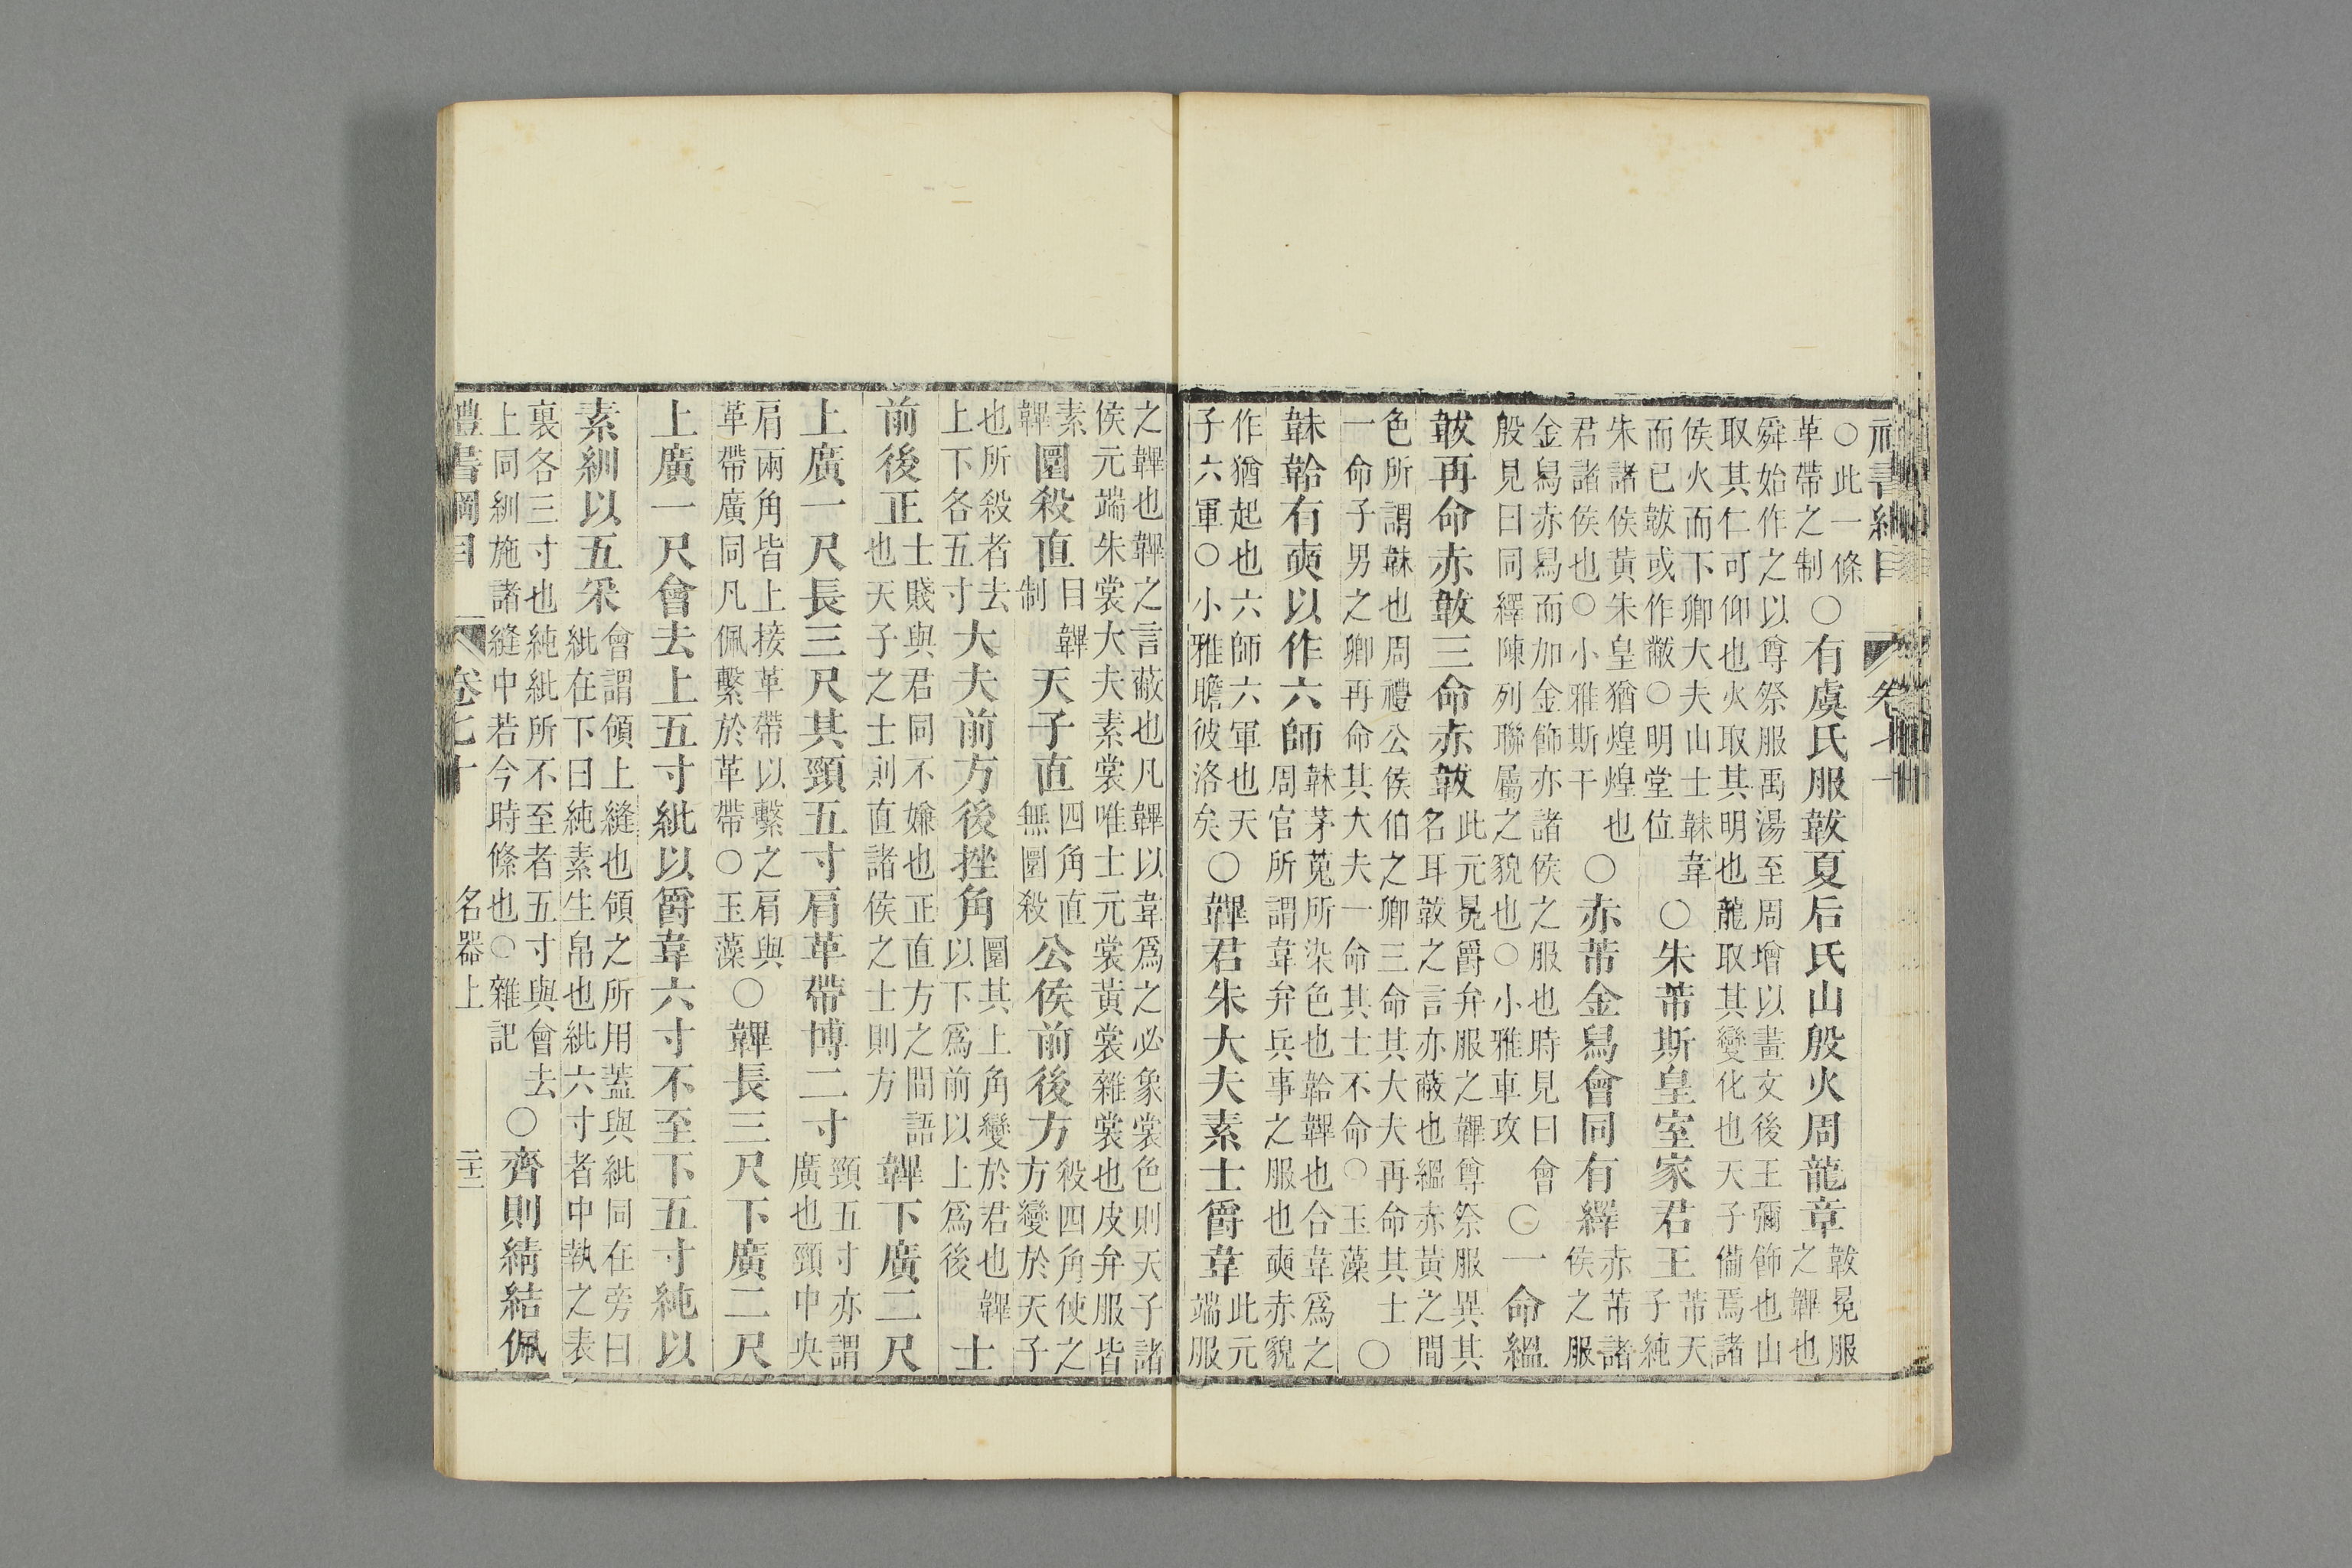 書綱目 卷七十
○此一條
革帶之制
○有虞氏服韍夏后氏山殷火周龍章
韍冕服
之韠也
舜始作之以尊祭服禹湯至周增以畫文後王彌飾也山
取其仁可仰也火取其明也龍取其變化也天子備焉諸
侯火而下卿大夫山士韎韋
而已韍或作黻○明堂位
○朱芾斯皇室家君王
芾天
子純
朱諸侯黃朱皇猶煌煌也
君諸侯也○小雅斯干
○赤芾金舄會同有繹
赤芾諸
侯之服
金舄赤舄而加金飾亦諸侯之服也時見曰會
殷見曰同繹陳列聯屬之貌也○小雅車攻
○一命縕
韍再命赤韍三命赤韍
此元冕爵弁服之韠尊祭服異其
名耳韍之言亦蔽也縕赤黃之間
色所謂韎也周禮公侯伯之卿三命其大夫再命其士
一命子男之卿再命其大夫一命其士不命○玉藻
○
韎韐有奭以作六師
韎茅蒐所染色也韐韠也合韋爲之
周官所謂韋弁兵事之服也奭赤貌
作猶起也六師六軍也天
子六軍○小雅瞻彼洛矣
○韠君朱大夫素士爵韋
此元
端服
之韠也韠之言蔽也凡韠以韋爲之必象裳色則天子諸
侯元端朱裳大夫素裳唯士元裳黃裳雜裳也皮弁服皆
素
韠
圜殺直
目韠
制
天子直
四角直
無圜殺
公侯前後方
殺四角使之
方變於天子
也所殺者去
上下各五寸
大夫前方後挫角
圜其上角變於君也韠
以下爲前以上爲後
士
前後正
士賤與君同不嫌也正直方之間語
也天子之士則直諸侯之士則方
韠下廣二尺
上廣一尺長三尺其頸五寸肩革帶博二寸
頸五寸亦謂
廣也頸中央
肩兩角皆上接革帶以繫之肩與
革帶廣同凡佩繫於革帶○玉藻
○韠長三尺下廣二尺
上廣一尺會去上五寸紕以爵韋六寸不至下五寸純以
素紃以五采
會謂領上縫也領之所用蓋與紕同在旁曰
紕在下曰純素生帛也紕六寸者中執之表
裏各三寸也純紕所不至者五寸與會去
上同紃施諸縫中若今時絛也○雜記
○齊則綪結佩
禮書綱目 卷七十 名器上